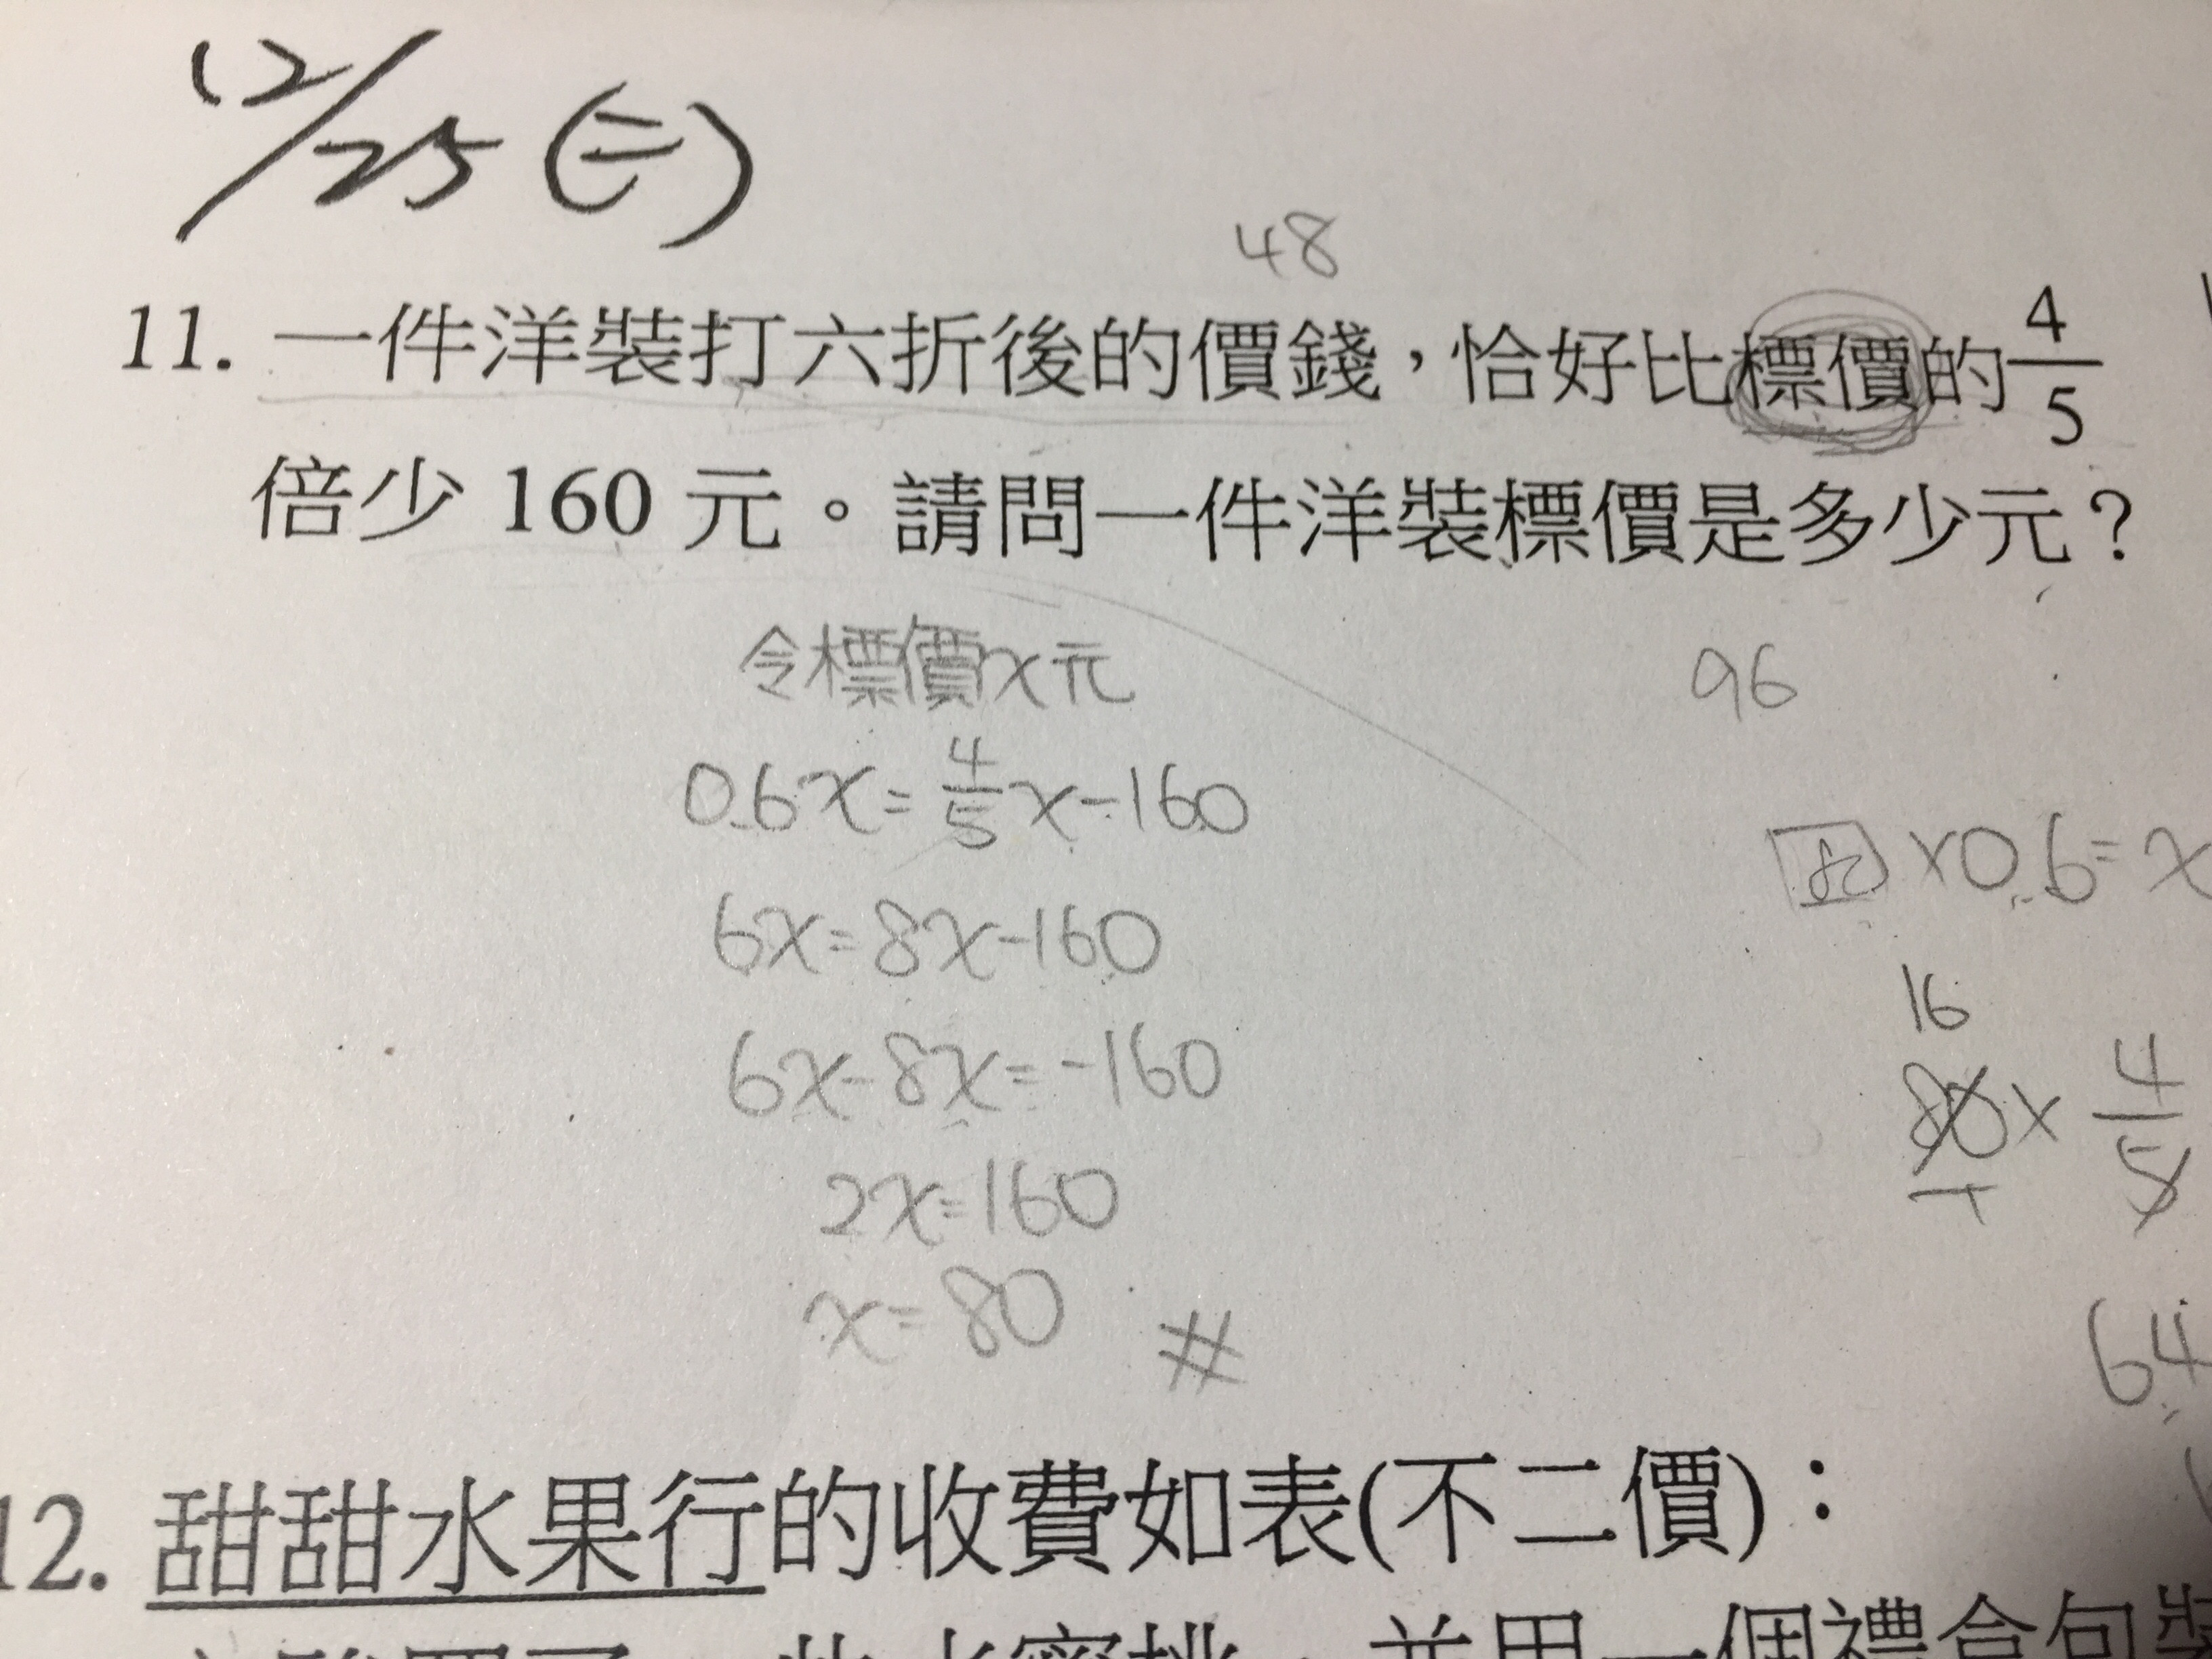 12/25(二)
48
11. 一件洋裝打六折後的價錢，恰好比標價的4/5
倍少 160 元。請問一件洋裝標價是多少元？
令標價x元
96
0.6x=4/5x-160
×0.6=x
6x=8x-160
16
6x-8x=-160
80×4/5
2x=160
x=80 #
64
12. 甜甜水果行的收費如表(不二價)：